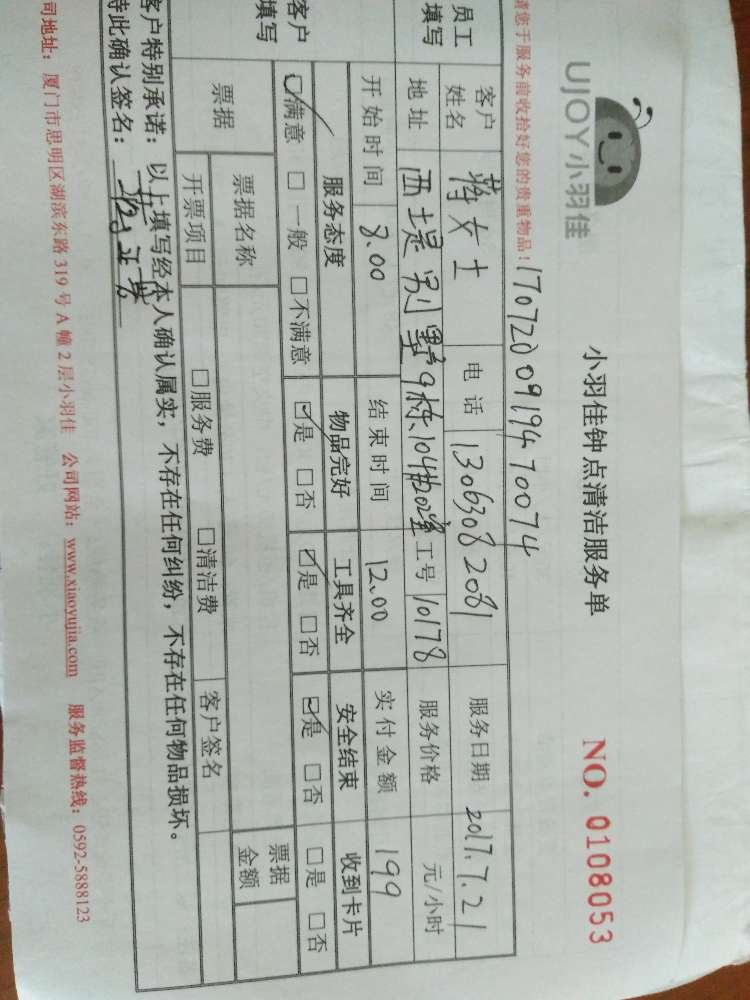 UJOY小羽佳
小羽佳钟点清洁服务单
NO. 0108053
请您于服务前收拾好您的贵重物品!
17072009194 70074
员工填写
客户姓名 蒋女士 电话 13063082081 服务日期 2017.7.21
地址 西堤别墅9栋104 工号 10178 服务价格 元/小时
开始时间 8.00 结束时间 12.00 实付金额 199
客户填写
服务态度 物品完好 工具齐全 安全结束 收到卡片
☑满意 □一般 □不满意 ☑是 □否 ☑是 □否 ☑是 □否 □是 □否
票据 票据名称 票据金额
开票项目 □服务费 □清洁费 客户签名
客户特别承诺:以上填写经本人确认属实,不存在任何纠纷,不存在任何物品损坏。
特此确认签名:
司地址:厦门市思明区湖滨东路 319 号 A 幢 2 层小羽佳 公司网站:www.xiaoyujia.com 服务监督热线:0592-5888123